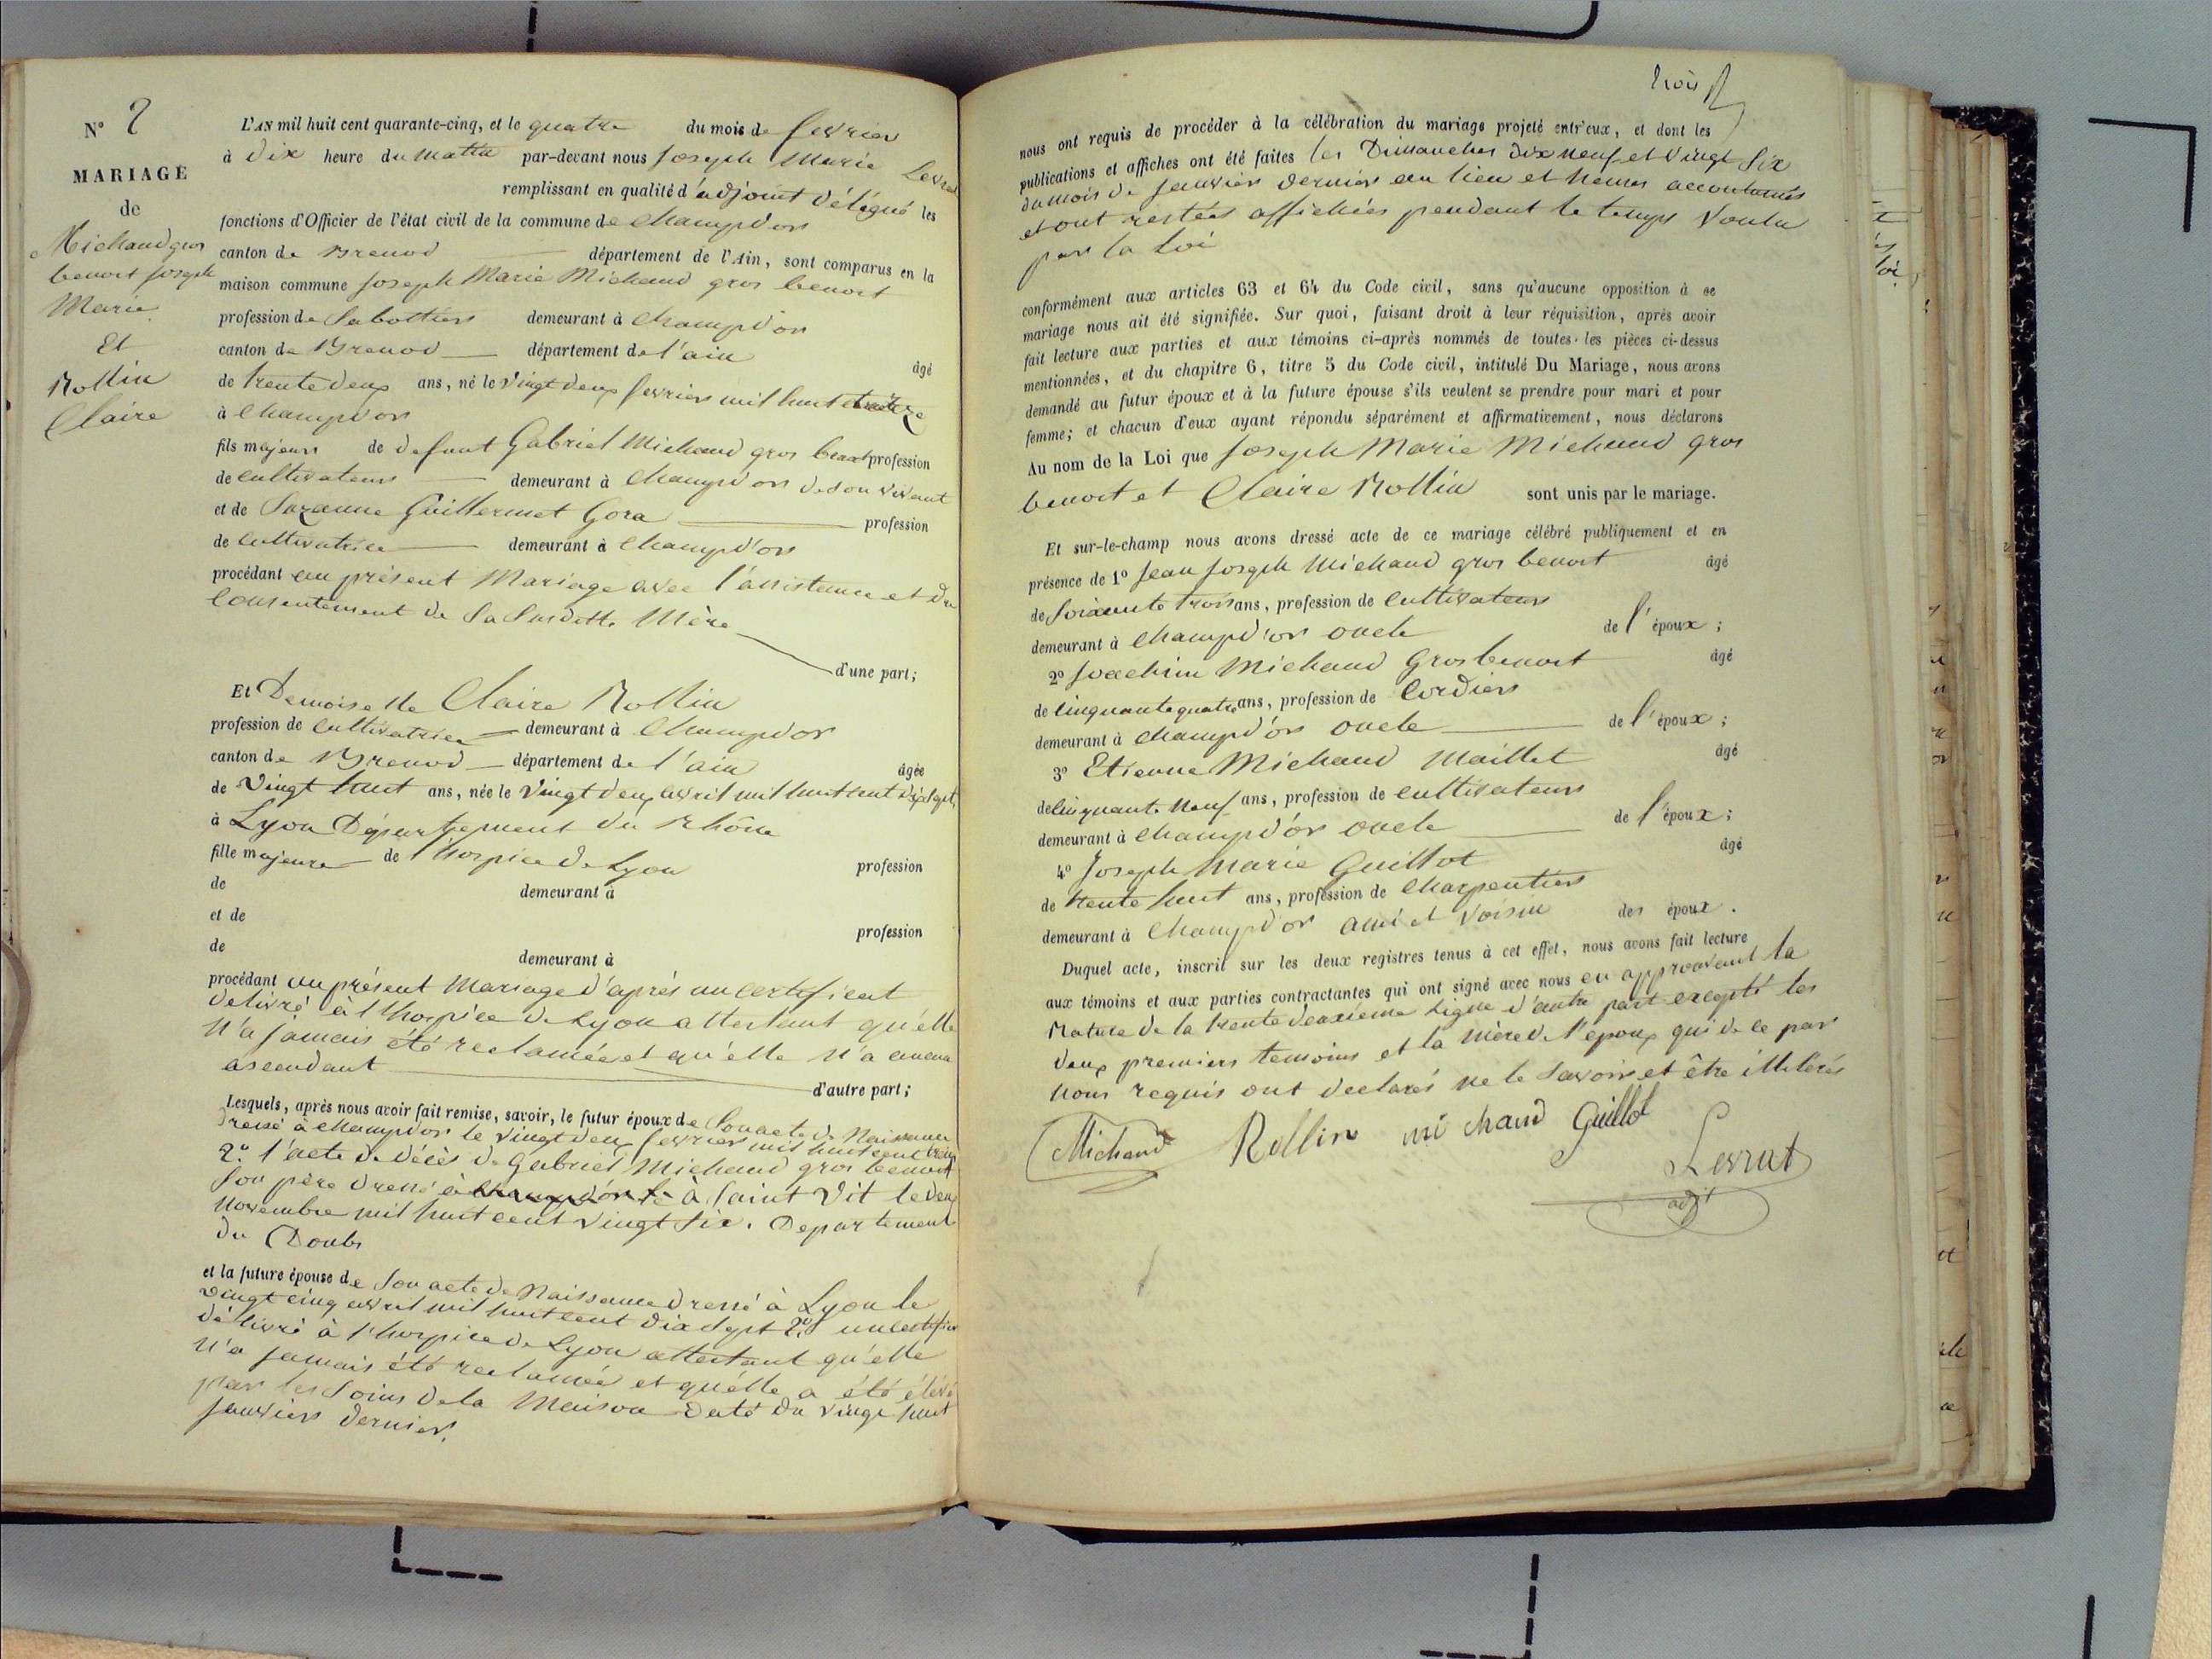 N° 2
MARIAGE
de
Michaud gros
benoit joseph
Marie
Et
Rollin
Claire
L'AN mil huit cent quarante-cinq, et le quatre du mois de fevrier
à dix heure du matin par-devant nous joseph Marie Levrat
remplissant en qualité d'adjoint délégué les
fonctions d'Officier de l'état civil de la commune de Champdor
canton de Brenod département de l'Ain, sont comparus en la
maison commune joseph Marie Michaud gros benoit
profession de Sabottier demeurant à Champd'or
canton de Brenod département de l'ain
âgé
de trente deux ans, né le vingt deux fevrier mil huit cent treize
à Champdor
fils majeur de defunt Gabriel Michaud gros benoit profession
de cultivateur demeurant à Champd'or de son vivant
et de Suzanne Guillermet Gora profession
de cultivatrice demeurant à Champd'or
procédant au présent Mariage avec l'assistance et du
Consentement de Sa Susditte Mère
d'une part;
Et Demoiselle Claire Rollin
profession de cultivatrice demeurant à Champdor
canton de Brenod département de l'ain
âgée
de Vingt huit ans, née le Vingt deux avril mil huit cent dix sept
à Lyon Département du Rhône
fille majeure de l'hospice de Lyon profession
de demeurant à
et de profession
de demeurant à
procédant au présent Mariage d'après un certificat
delivré à l'hospice de Lyon attestant qu'elle
n'a jamais été reclamée et qu'elle n'a aucun
ascendant
d'autre part;
Lesquels, après nous avoir fait remise, savoir, le futur époux de Son acte de Naissance
dressé à Champdor le vingt deux fevrier mil huit cent treize
2° l'acte de décès de Gabriel Michaud gros benoit
Son père dressé à Champdor le à Saint Vit le deux
novembre mil huit cent vingt six. Departement
du Doubs
et la future épouse de Son acte de Naissance dressé à Lyon le
vingt cinq avril mil huit cent dix sept 2° un certificat
délivré à l'hospice de Lyon attestant qu'elle
n'a jamais été reclamée et quélle a été élevé
par les Soins de la Maison daté du vingt huit
janvier dernier.
trois
nous ont requis de procéder à la célébration du mariage projeté entr'eux, et dont les
publications et affiches ont été faites les Dimanches dix neuf et vingt Six
du mois de janvier dernier au lieu et heures accoutumés
et ont restées affichées pendant le temps Voulu
par la Loi
conformément aux articles 63 et 64 du Code civil, sans qu'aucune opposition à ce
mariage nous ait été signifiée. Sur quoi, faisant droit à leur réquisition, après avoir
fait lecture aux parties et aux témoins ci-après nommés de toutes les pièces ci-dessus
mentionnées, et du chapitre 6, titre 5 du Code civil, intitulé Du Mariage, nous avons
demandé au futur époux et à la future épouse s'ils veulent se prendre pour mari et pour
femme; et chacun d'eux ayant répondu séparément et affirmativement, nous déclarons
Au nom de la Loi que joseph Marie Michaud gros
benoit et Claire Rollin sont unis par le mariage.
Et sur-le-champ nous avons dressé acte de ce mariage célébré publiquement et en
présence de 1° Jean joseph Michaud gros benoit âgé
de Soixante trois ans, profession de Cultivateur
demeurant à Champd'or oncle de l'époux;
2° joachim Michaud Gros benoit âgé
de Cinquante quatre ans, profession de Cordier
demeurant à Champd'or oncle de l'époux;
3° Etienne Michaud Maillet âgé
de Cinquante neuf ans, profession de cultivateur
demeurant à Champd'or oncle de l'époux;
4° Joseph Marie Guillot âgé
de trente huit ans, profession de Charpentier
demeurant à Champd'or ami et voisin des époux.
Duquel acte, inscrit sur les deux registres tenus à cet effet, nous avons fait lecture
aux témoins et aux parties contractantes qui ont signé avec nous en approuvant la
Rature de la trente deuxieme Ligne d'autre part excepté les
deux premiers temoins et la mère de l'epoux qui de ce par
nous requis ont declarés ne le Savoir et être illiterés
Michaud Rollin michaud Guillot
Levrat
adjt